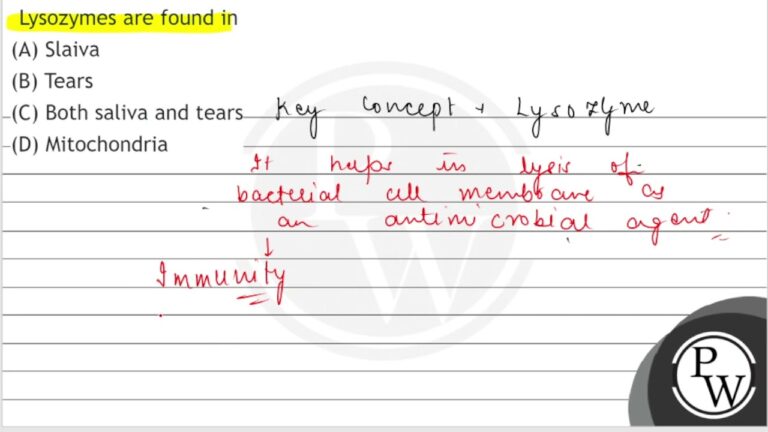 Lysozymes are found in
(A) Slaiva
(B) Tears
(C) Both saliva and tears
(D) Mitochondria
Key Concept + Lysozyme
It helps in lysis of
bacterial cell membrane as
an antimicrobial agent
Immunity
PW
PW